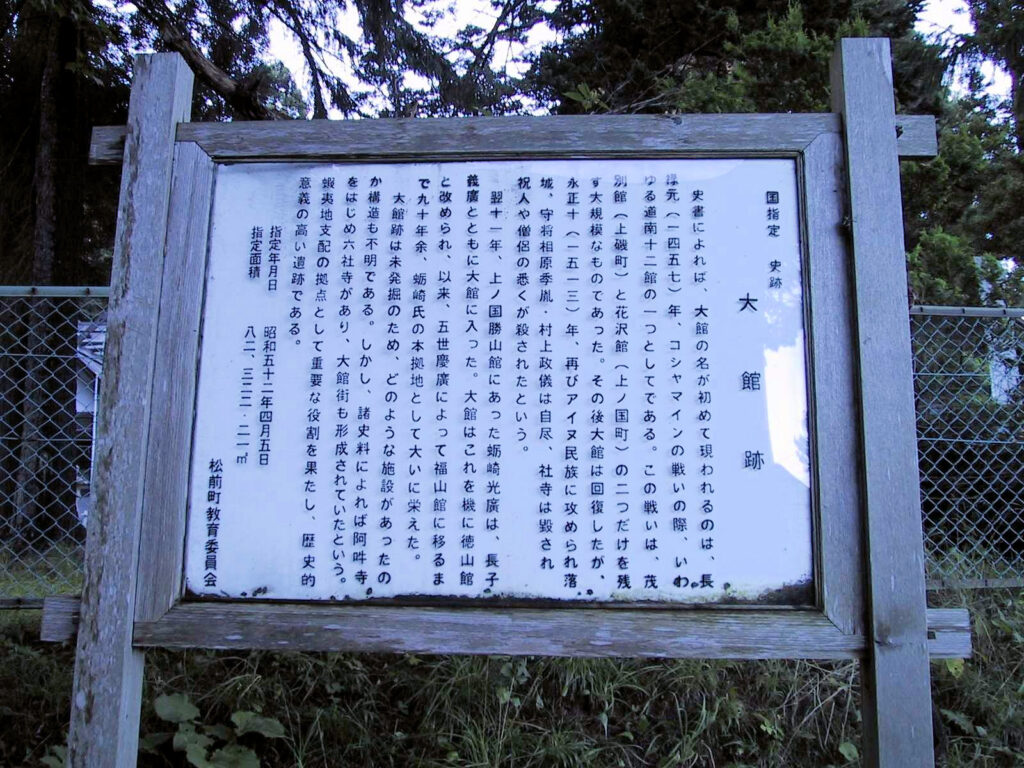 国指定　史跡
大館跡
史書によれば、大館の名が初めて現われるのは、長
禄元（一四五七）年、コシャマインの戦いの際、いわ
ゆる道南十二館の一つとしてである。この戦いは、茂
別館（上磯町）と花沢館（上ノ国町）の二つだけを残
す大規模なものであった。その後大館は回復したが、
永正十（一五一三）年、再びアイヌ民族に攻められ落
城、守将相原季胤・村上政儀は自尽、社寺は毀され
祝人や僧侶の悉くが殺されたという。
翌十一年、上ノ国勝山館にあった蛎崎光廣は、長子
義廣とともに大館に入った。大館はこれを機に徳山館
と改められ、以来、五世慶廣によって福山館に移るま
で九十年余、蛎崎氏の本拠地として大いに栄えた。
大館跡は未発掘のため、どのような施設があったの
か構造も不明である。しかし、諸史料によれば阿吽寺
をはじめ六社寺があり、大館街も形成されていたという。
蝦夷地支配の拠点として重要な役割を果たし、歴史的
意義の高い遺跡である。
指定年月日　昭和五十二年四月五日
指定面積　八二、三二二・二一㎡
松前町教育委員会